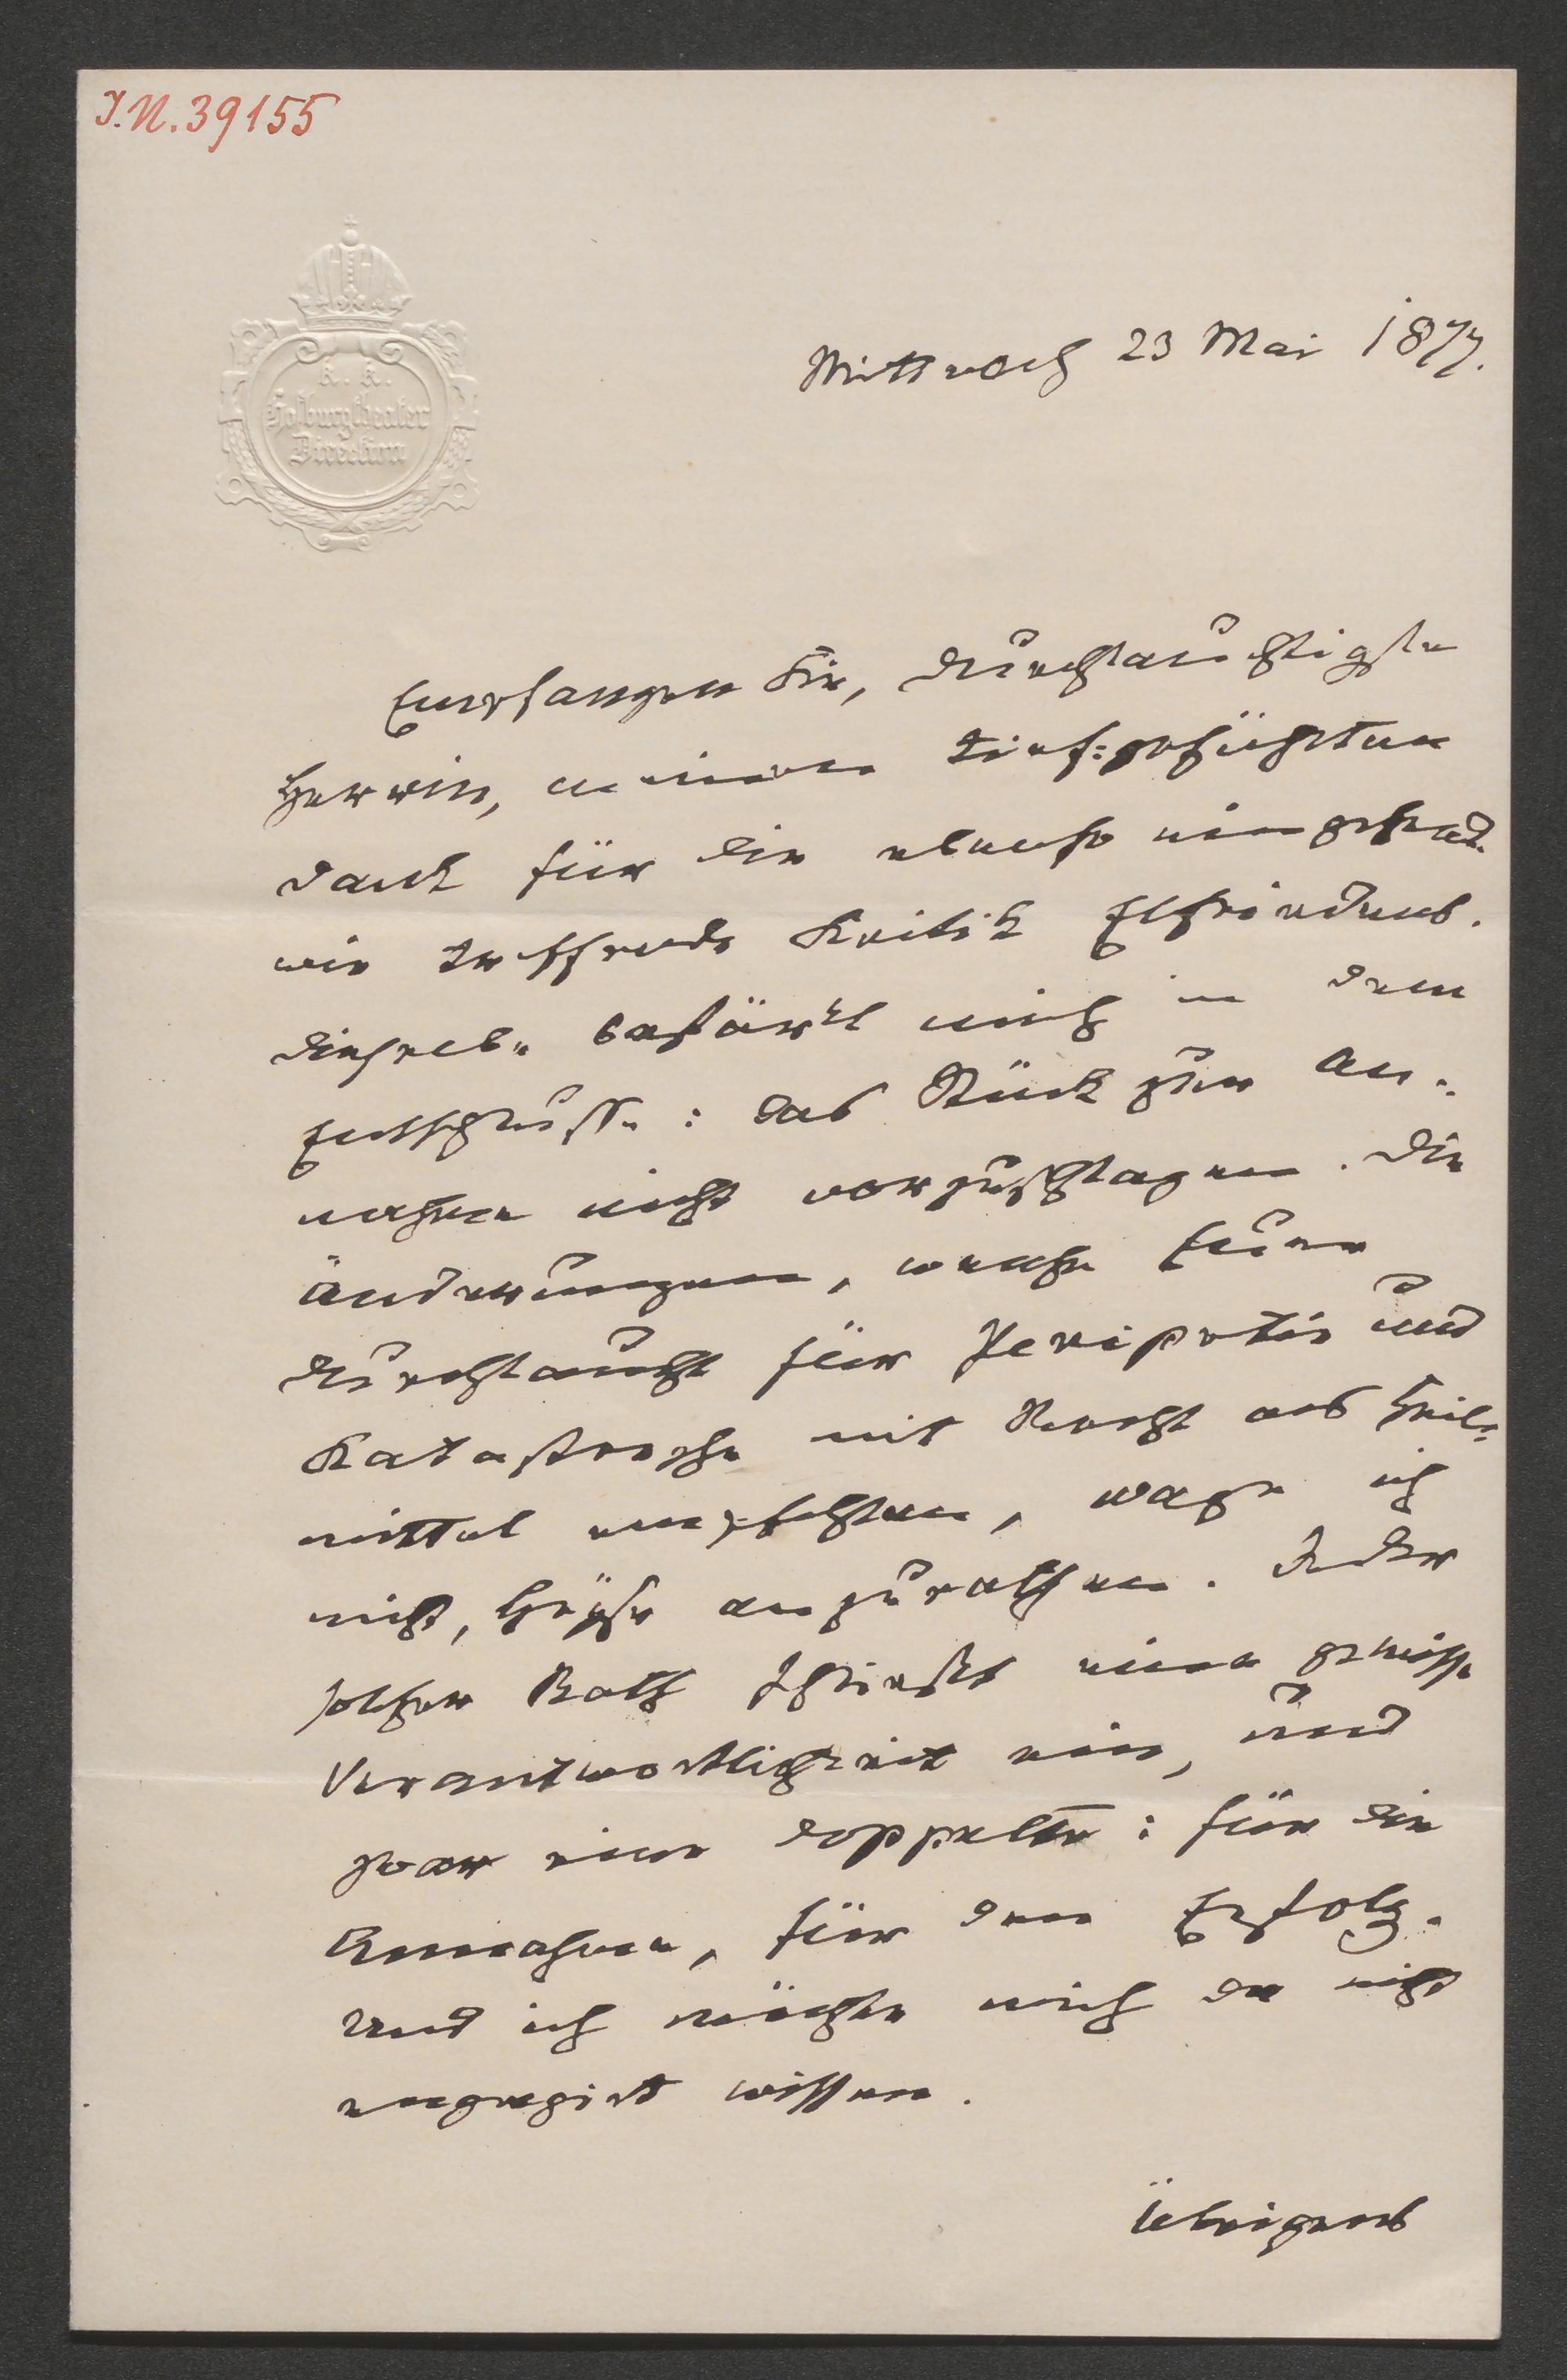 I.N. 39155
K. K.
Hofburgtheater
Direction
Mittwoch 23 Mai 1877.
Empfangen Sie, durchlauchtigste
Herrin, meinen tief-gefühlten
Dank für die ebenso eingehend.
wie treffende Kritik Elfriedens.
Dieselbe bestärkt mich in dem
Entschlusse: das Stück zur An-
nahme nicht vorzuschlagen. Die
Änderungen, welche Euer
Durchlaucht für Peripetie und
Katastrophe mit Recht als Heil-
mittel empfehlen, wage ich
nicht, Heyse anzurathen. Jeder
solcher Rath schließt eine gewisse
Verantwortlichkeit ein, und
zwar eine doppelte: für die
Annahme, für den Erfolg.
Und ich möchte mich da nicht
engagirt wissen.
Übrigens